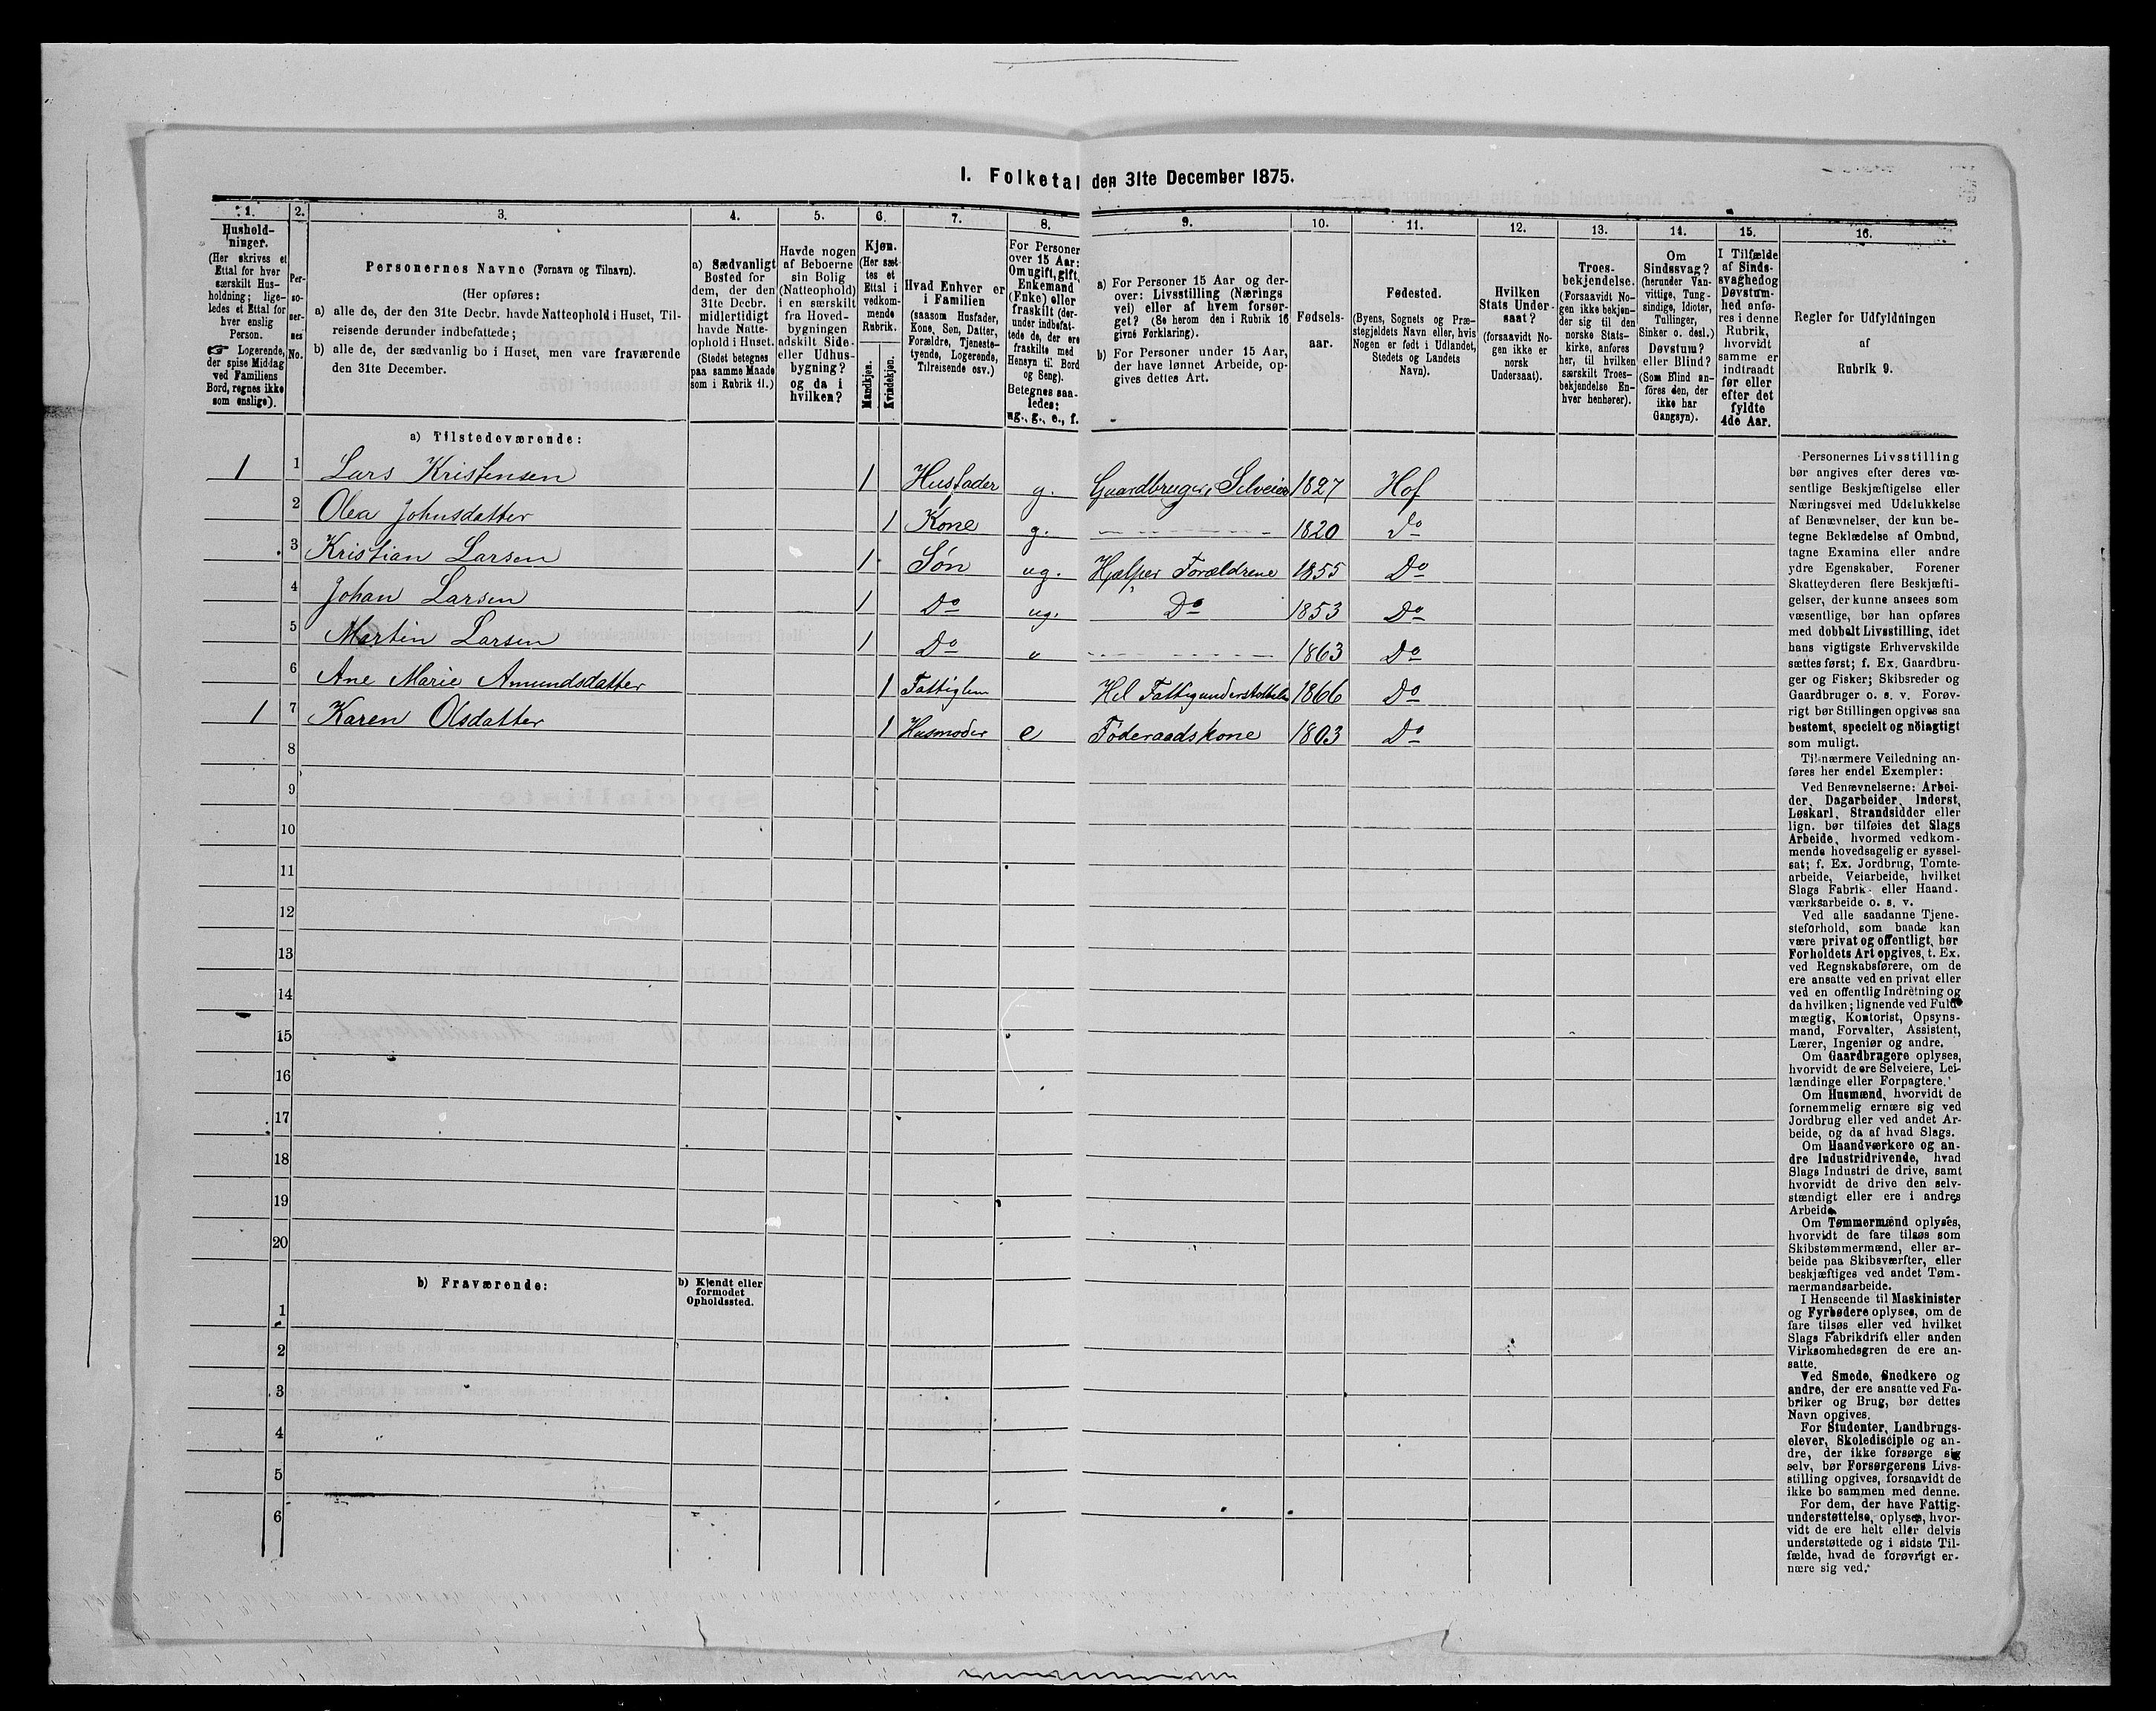 I. Folketal den 31te December 1875.
1. 2. 3. 4. 5. 6. 7. 8. 9. 10. 11. 12. 13. 14. 15. 16.
Hushold-
ninger.
(Her skrives et
Ettal for hver
særskilt Hus-
holdning; lige-
ledes et Ettal for
hver enslig
Person.
☞ Logerende,
der spise Middag
ved Familiens
Bord, regnes ikke
som enslige).
Per-
so-
ner-
nes
No.
Personernes Navne (Fornavn og Tilnavn).
(Her opføres:
a) alle de, der den 31te Decbr. havde Natteophold i Huset, Til-
reisende derunder indbefattede;
b) alle de, der sædvanlig bo i Huset, men vare fraværende
den 31te December.
a) Sædvanligt
Bosted for
dem, der den
31te Decbr.
midlertidigt
havde Natte-
ophold i Huset.
(Stedet betegnes
paa samme Maade
som i Rubrik 11.)
Havde nogen
af Beboerne
sin Bolig
(Natteophold)
i en særskilt
fra Hoved-
bygningen
adskilt Side-
eller Udhus-
bygning?
og da i
hvilken?
Kjøn.
(Her sæt-
tes et
Ettal i
vedkom-
mende
Rubrik.
Mandkjøn.
Kvindekjøn.
Hvad Enhver er
i Familien
(saasom Husfader,
Kone, Søn, Datter,
Forældre, Tjeneste-
tyende, Logerende,
Tilreisende osv.)
For Personer
over 15 Aar:
Om ugift, gift,
Enkemand
(Enke) eller
fraskilt (der-
under indbefat-
tede de, der ere
fraskilte med
Hensyn til Bord
og Seng).
Betegnes saa-
ledes:
ug., g., e., f.
a) For Personer 15 Aar og der-
over: Livsstilling (Nærings
vei) eller af hvem forsør-
get? (Se herom den i Rubrik 16
givne Forklaring).
b) For Personer under 15 Aar,
der have lønnet Arbeide, op-
gives dettes Art.
Fødsels-
aar.
Fødested.
(Byens, Sognets og Præ-
stegjeldets Navn eller, hvis
Nogen er født i Udlandet,
Stedets og Landets
Navn).
Hvilken
Stats Under-
saat?
(forsaavidt No-
gen ikke er
norsk
Undersaat).
Troes-
bekjendelse.
(Forsaavidt No-
gen ikke bekjen-
der sig til den
norske Stats-
kirke, anføres
her, til hvilken
særskilt Troes-
bekjendelse En-
hver henhører).
Om
Sindssvag?
(herunder Van-
vittige, Tung-
sindige, Idioter,
Tullinger,
Sinker o. desl.)
Døvstum?
eller Blind?
(Som Blind an-
føres den, der
ikke har
Gangsyn).
I Tilfælde
af Sinds-
svaghed og
Døvstum-
hed anfø-
res i denne
Rubrik,
hvorvidt
samme er
indtraadt
før eller
efter det
fyldte
4de Aar.
Regler for Udfyldningen
af
Rubrik 9.
a) Tilstedeværende:
1 1 Lars Kristensen 1 Husfader g. Gaardbruger, Selveier 1827 Hof
2 Olea Johnsdatter 1 Kone g. 1820 Do
3 Kristian Larsen 1 Søn ug. Hjælper Forældrene 1855 Do
4 Johan Larsen 1 Do ug. Do 1853 Do
5 Martin Larsen 1 Do 1863 Do
6 Ane Marie Amundsdatter 1 Fattiglem Hel Fattigunderstøttelse 1866 Do
1 7 Karen Olsdatter 1 Husmoder e Føderaadskone 1803 Do
8
9
10
11
12
13
14
15
16
17
18
19
20
b) Fraværende:
b) Kjendt eller
formodet
Opholdssted.
1
2
3
4
5
6
Personernes Livsstilling
bør angives efter deres væ-
sentlige Beskjæftigelse eller
Næringsvei med Udelukkelse
af Benævnelser, der kun be-
tegne Beklædelse af Ombud,
tagne Examina eller andre
ydre Egenskaber. Forener
Skatteyderen flere Beskjæfti-
gelser, der kunne ansees som
væsentlige, bør han opføres
med dobbelt Livsstilling, idet
hans vigtigste Erhvervskilde
sættes først; f. Ex. Gaardbru-
ger og Fisker; Skibsreder og
Gaardbruger o. s. v. Forøv-
rigt bør Stillingen opgives saa
bestemt, specielt og nöiagtigt
som muligt.
Til nærmere Veiledning an-
føres her endel Exempler:
Ved Benævnelserne: Arbei-
der, Dagarbeider, Inderst,
Løskarl, Strandsidder eller
lign. bør tilføies det Slags
Arbeide, hvormed vedkom-
mende hovedsagelig er syssel-
sat; f. Ex. Jordbrug, Tomte-
arbeide, Veiarbeide, hvilket
Slags Fabrik- eller Haand-
værksarbeide o. s. v.
Ved alle saadanne Tjene-
steforhold, som baade kan
være privat og offentligt, bør
Forholdets Art opgives, t. Ex.
ved Regnskabsførere, om de
ere ansatte ved en privat eller
ved en offentlig Indretning og
da hvilken; lignende ved Fuld-
mægtig, Kontorist, Opsyns-
mand, Forvalter, Assistent,
Lærer, Ingeniør og andre.
Om Gaardbrugere oplyses,
hvorvidt de ere Selveiere, Lei-
lændinge eller Forpagtere.
Om Husmænd, hvorvidt de
fornemmelig ernære sig ved
Jordbrug eller ved andet Ar-
beide, og da af hvad Slags.
Om Haandværkere og an-
dre Industridrivende, hvad
Slags Industri de drive, samt
hvorvidt de drive den selv-
stændigt eller ere i andres
Arbeide.
Om Tømmermænd oplyses,
hvorvidt de fare tilsøs som
Skibstømmermænd, eller ar-
beide paa Skibsværfter, eller
beskjæftiges ved andet Tøm-
mermandsarbeide.
I Henseende til Maskinister
og Fyrbødere oplyses, om de
fare tilsøs eller ved hvilket
Slags Fabrikdrift eller anden
Virksomhedsgren de ere an-
satte.
Ved Smede, Snedkere og
andre, der ere ansatte ved Fa-
briker og Brug, bør dettes
Navn opgives.
For Studenter, Landbrugs-
elever, Skoledisciple og an-
dre, der ikke forsørge sig
selv, bør Forsørgerens Livs-
stilling opgives, forsaavidt de
ikke bo sammen med denne.
For dem, der have Fattig-
understøttelse, oplyses, hvor-
vidt de ere helt eller delvis
understøttede og i sidste Til-
fælde, hvad de forøvrigt er-
nære sig ved.